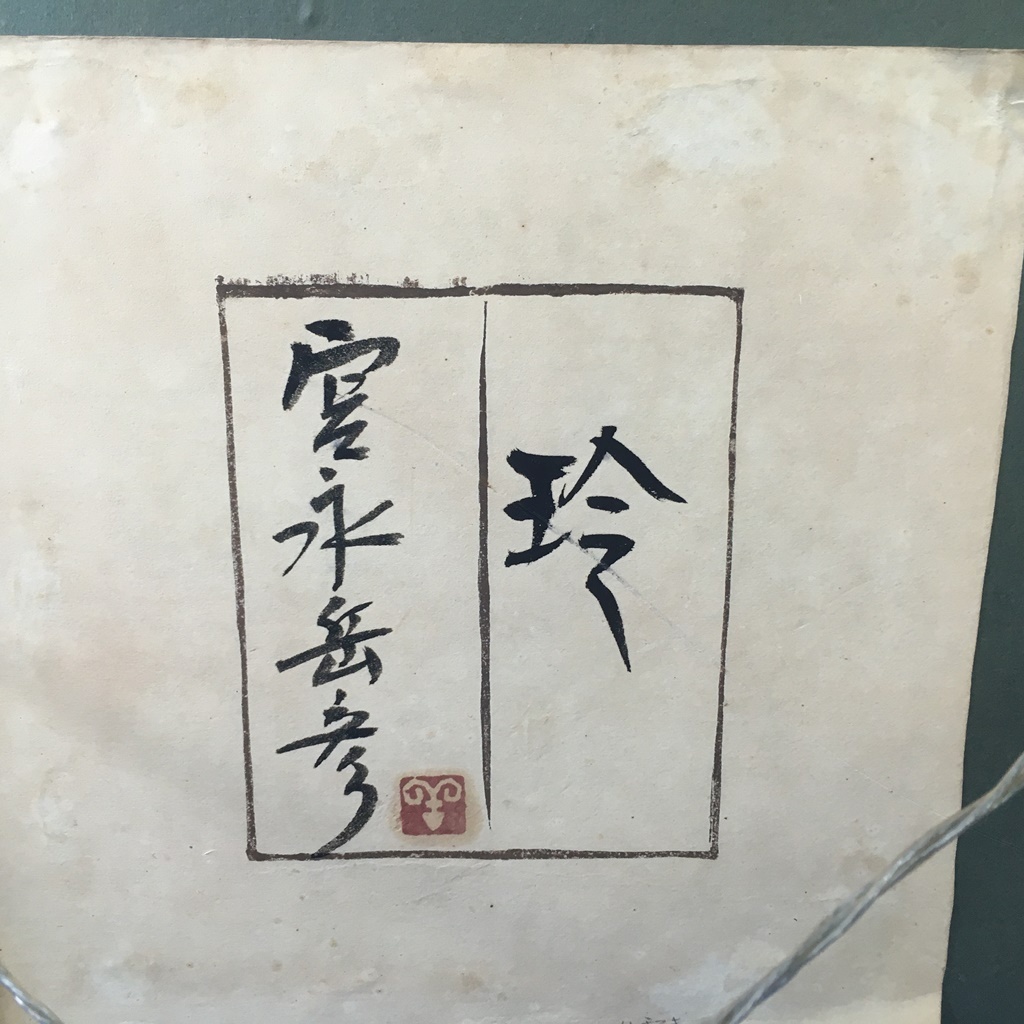 玲
宮永岳彦